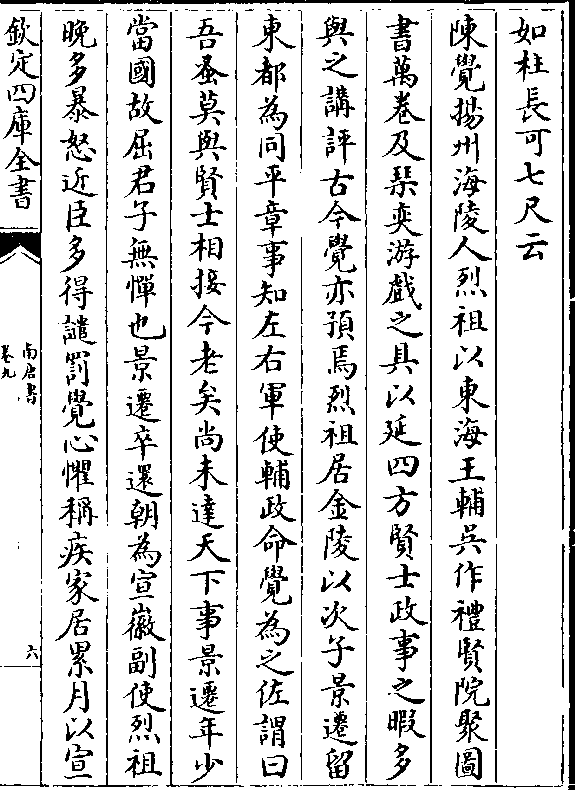 如柱長可七尺云
陳覺揚州海陵人烈祖以東海王輔吳作禮賢院聚圖
書萬卷及琹奕游戲之具以延四方賢士政事之暇多
與之講評古今覺亦預焉烈祖居金陵以次子景遷留
東都為同平章事知左右軍使輔政命覺為之佐謂曰
吾蚤莫與賢士相接今老矣尚未達天下事景遷年少
當國故屈君子無憚也景遷卒還朝為宣徽副使烈祖
晚多暴怒近臣多得譴罰覺心懼稱疾家居累月以宣
欽定四庫全書
南唐書
卷九
六